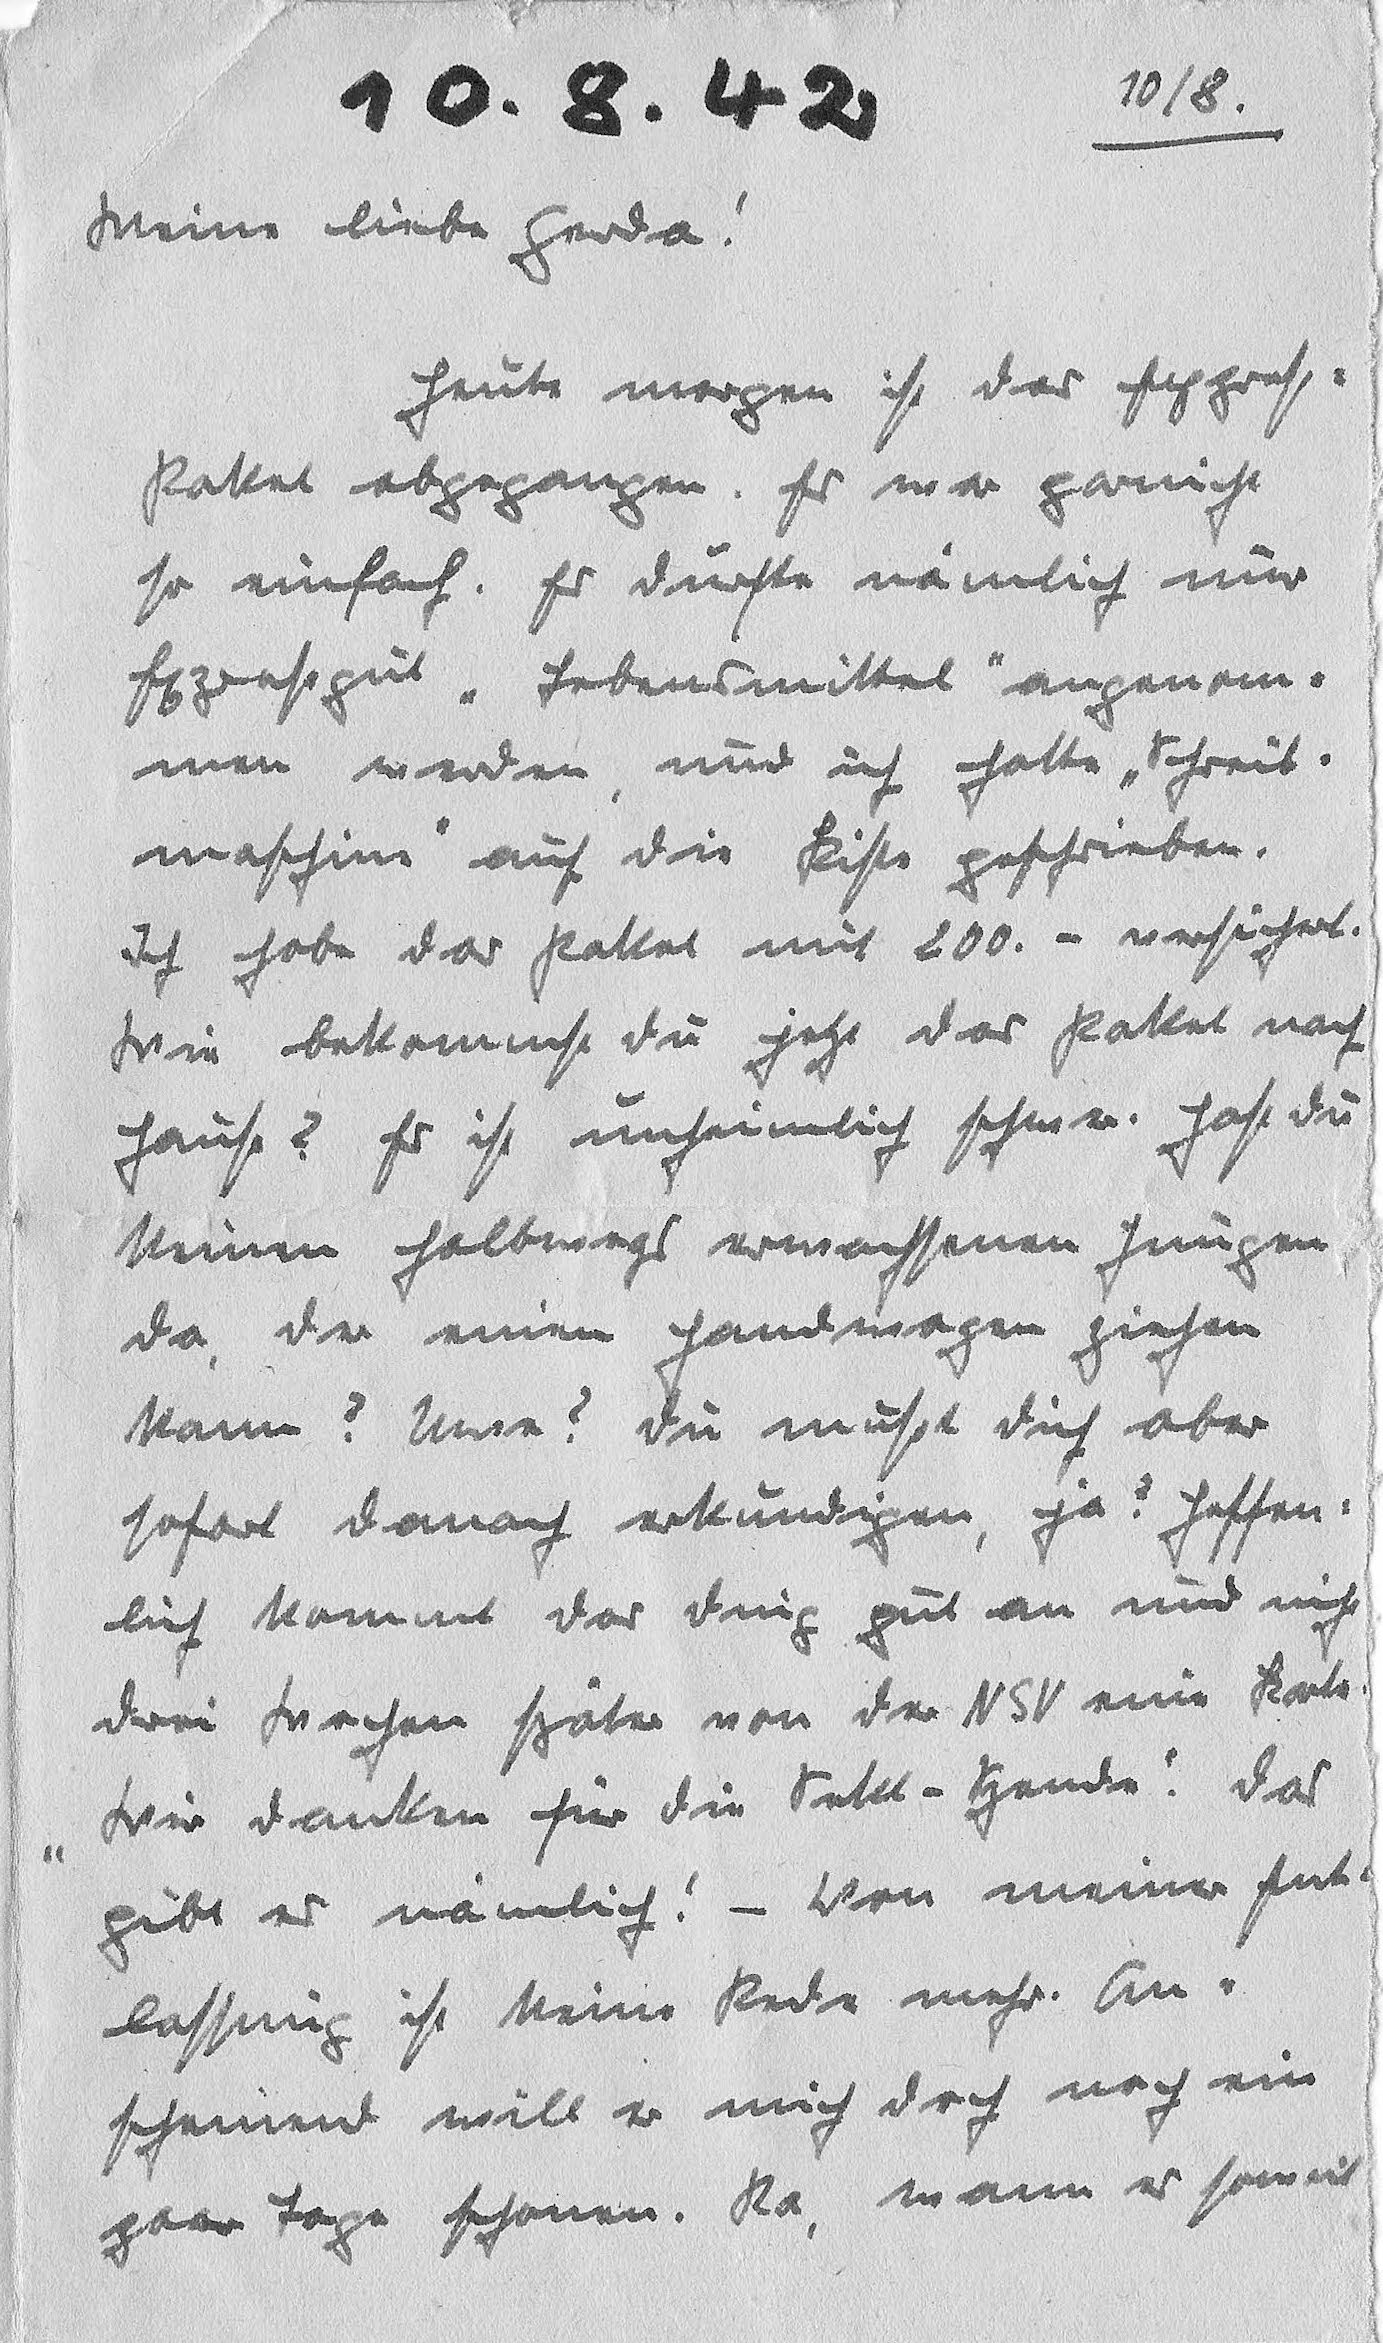 10.8.42
10/8.
Meine liebe Gerda!
Heute morgen ist das Express-
Paket abgegangen. Es war garnicht
so einfach. Es durfte nämlich nur
Expressgut „Lebensmittel" angenom-
men werden, und ich hatte „Schreib-
maschine" auf die Kiste geschrieben.
Ich habe das Paket mit 200.- versichert.
Wie bekommst du jetzt das Paket nach
Hause? Es ist unheimlich schwer. Hast du
keinen halbwegs erwachsenen Jungen
da, der einen Handwagen ziehen
kann? Uwe? Du mußt dich aber
sofort danach erkundigen, ja? Hoffen-
lich kommt das Ding gut an und nicht
drei Wochen später von der NSV eine Karte.
„Wir danken für die Sekt-Spende". Das
gibt es nämlich! - Von meiner Ent-
lassung ist keine Rede mehr. An-
scheinend will er mich doch noch ein
paar Tage schonen. Na, wann er soweit